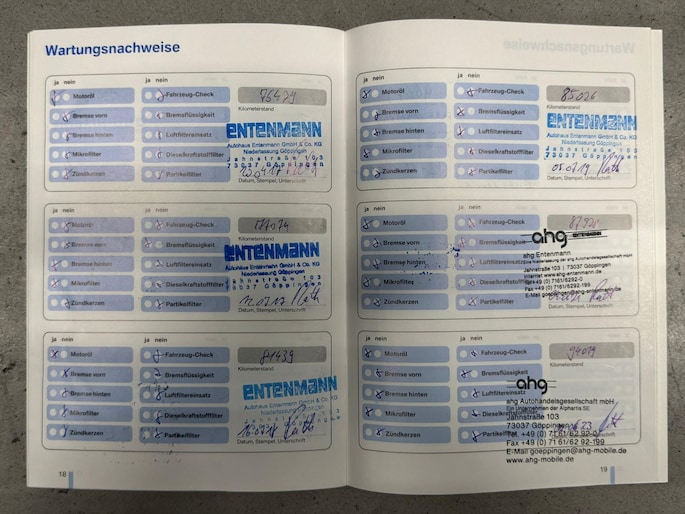 Wartungsnachweise
ja nein
ja nein
Motoröl
Fahrzeug-Check
76479
Bremse vorn
Bremsflüssigkeit
Kilometerstand
Bremse hinten
Luftfiltereinsatz
ENTENMANN
Autohaus Entenmann GmbH & Co. KG
Niederlassung Göppingen
Mikrofilter
Dieselkraftstofffilter
Jahnstraße 103
73037 Göppingen
Zündkerzen
Partikelfilter
Datum, Stempel, Unterschrift
ja nein
ja nein
Motoröl
Fahrzeug-Check
Bremse vorn
Bremsflüssigkeit
Kilometerstand
Bremse hinten
Luftfiltereinsatz
ENTENMANN
Autohaus Entenmann GmbH & Co. KG
Niederlassung Göppingen
Mikrofilter
Dieselkraftstofffilter
Jahnstraße 103
73037 Göppingen
Zündkerzen
Partikelfilter
ja nein
ja nein
Motoröl
Fahrzeug-Check
81439
Bremse vorn
Bremsflüssigkeit
Kilometerstand
Bremse hinten
Luftfiltereinsatz
ENTENMANN
Autohaus Entenmann GmbH & Co. KG
Mikrofilter
Dieselkraftstofffilter
Zündkerzen
Partikelfilter
Datum, Stempel, Unterschrift
18
ja nein
ja nein
Motoröl
Fahrzeug-Check
85026
Bremse vorn
Bremsflüssigkeit
Kilometerstand
Bremse hinten
Luftfiltereinsatz
ENTENMANN
Autohaus Entenmann GmbH & Co. KG
Niederlassung Göppingen
Mikrofilter
Dieselkraftstofffilter
Jahnstraße 103
73037 Göppingen
Zündkerzen
Partikelfilter
05.02.19
Datum, Stempel, Unterschrift
ja nein
ja nein
Motoröl
Fahrzeug-Check
Bremse vorn
Bremsflüssigkeit
ahg ENTENMANN
ahg Entenmann
Bremse hinten
Luftfiltereinsatz
Jahnstraße 103 | 73037 Göppingen
Internet www.ahg-entenmann.de
Mikrofilter
Dieselkraftstofffilter
Fon +49 (0) 7161/6292-0
Fax +49 (0) 7161/6292-199
Zündkerzen
Partikelfilter
ja nein
ja nein
Motoröl
Fahrzeug-Check
94019
Bremse vorn
Bremsflüssigkeit
ahg
Bremse hinten
Luftfiltereinsatz
ahg Autohandelsgesellschaft mbH
Ein Unternehmen der Alphartis SE
Mikrofilter
Dieselkraftstofffilter
Jahnstraße 103
73037 Göppingen
Zündkerzen
Partikelfilter
Tel. +49 (0) 71 61/62 92-0
Fax +49 (0) 71 61/62 92-199
E-Mail goeppingen@ahg-mobile.de
www.ahg-mobile.de
19